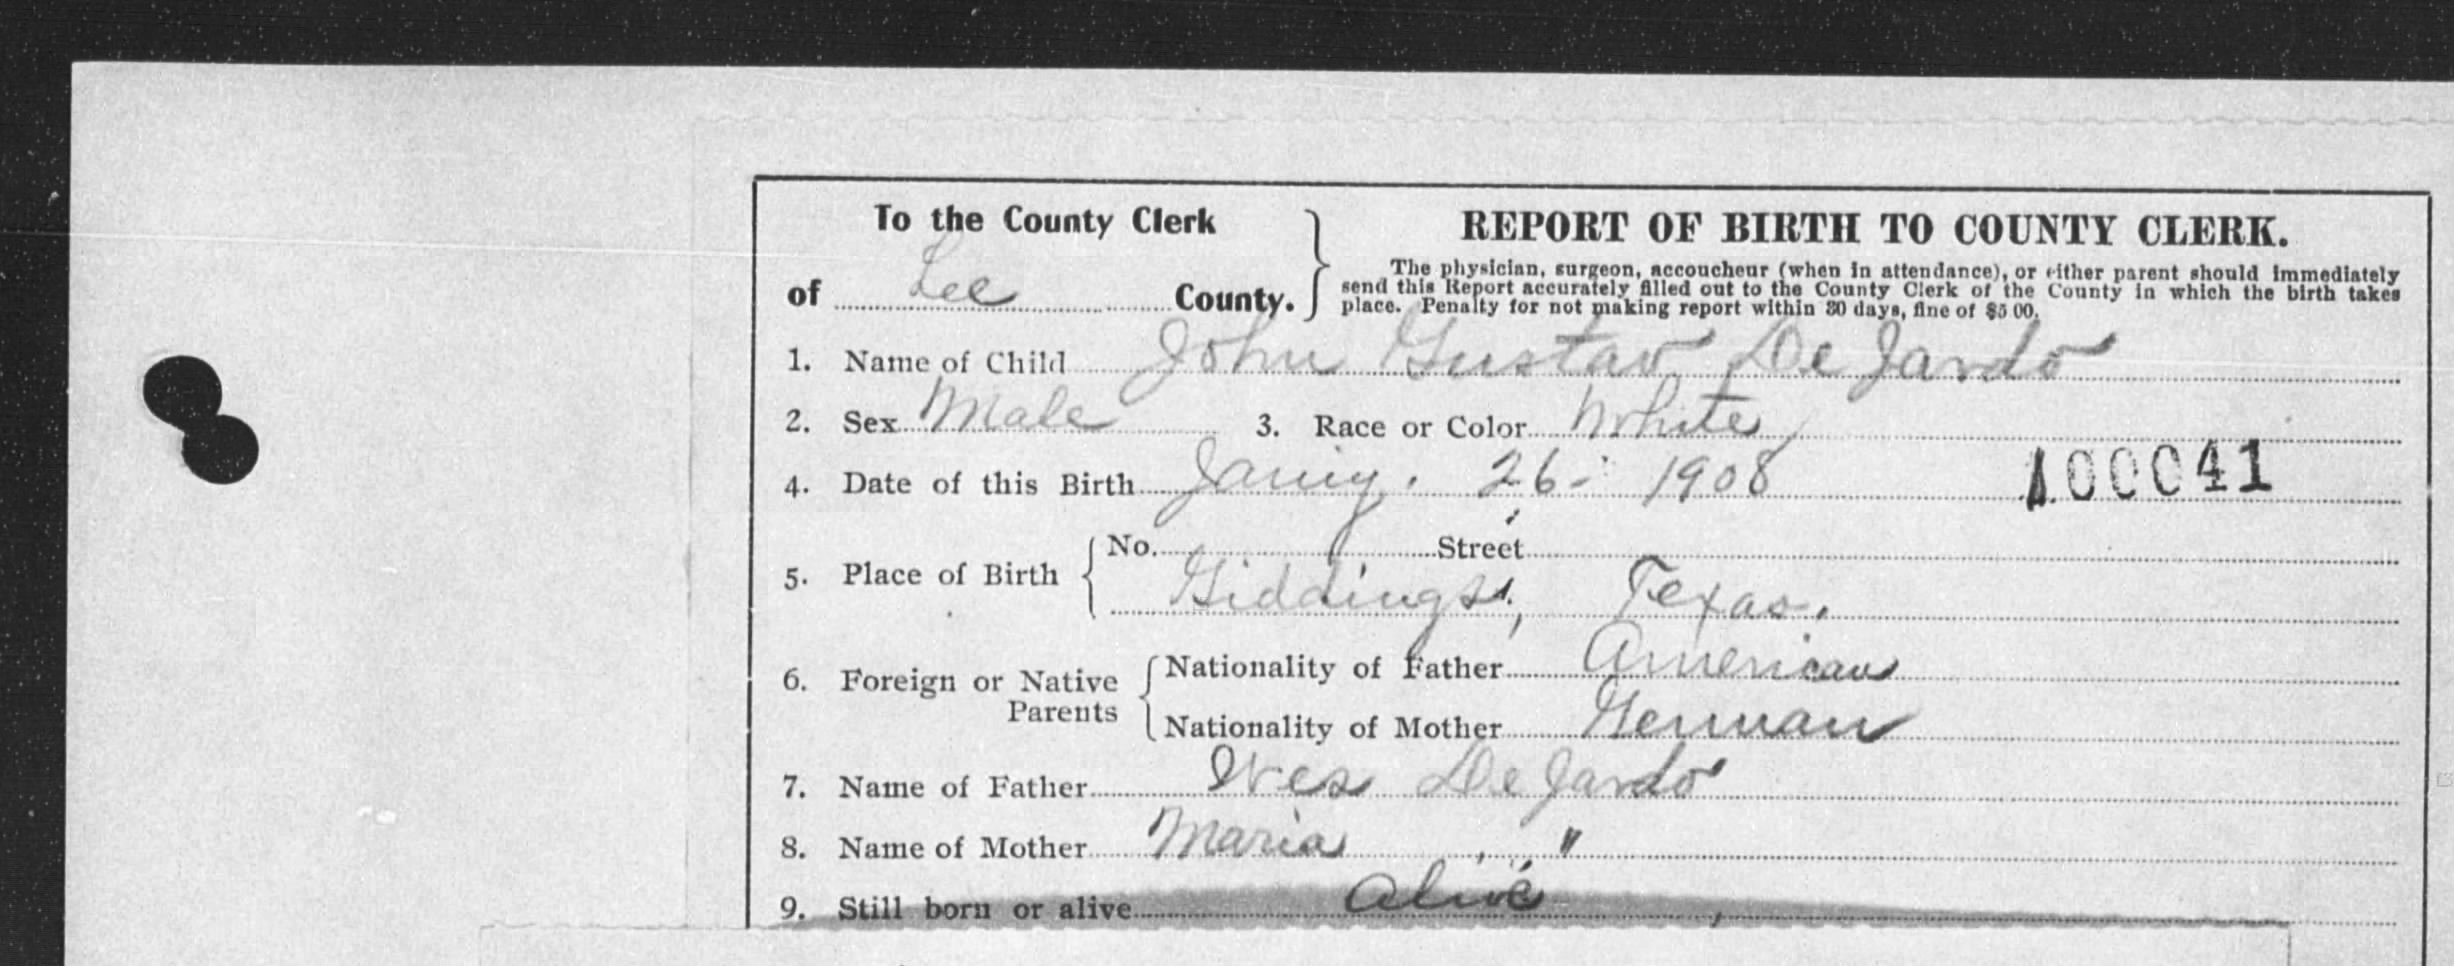 To the County Clerk
of Lee County.
REPORT OF BIRTH TO COUNTY CLERK.
The physician, surgeon, accoucheur (when in attendance), or either parent should immediately
send this Report accurately filled out to the County Clerk of the County in which the birth takes
place. Penalty for not making report within 30 days, fine of $5 00.
1. Name of Child John Gustav De Jardo
2. Sex Male 3. Race or Color White
4. Date of this Birth Jany. 26- 1908 100041
5. Place of Birth No. Street
Giddings, Texas.
6. Foreign or Native Parents Nationality of Father American
Nationality of Mother German
7. Name of Father Wes De Jardo
8. Name of Mother Maria "
9. Still born or alive alive